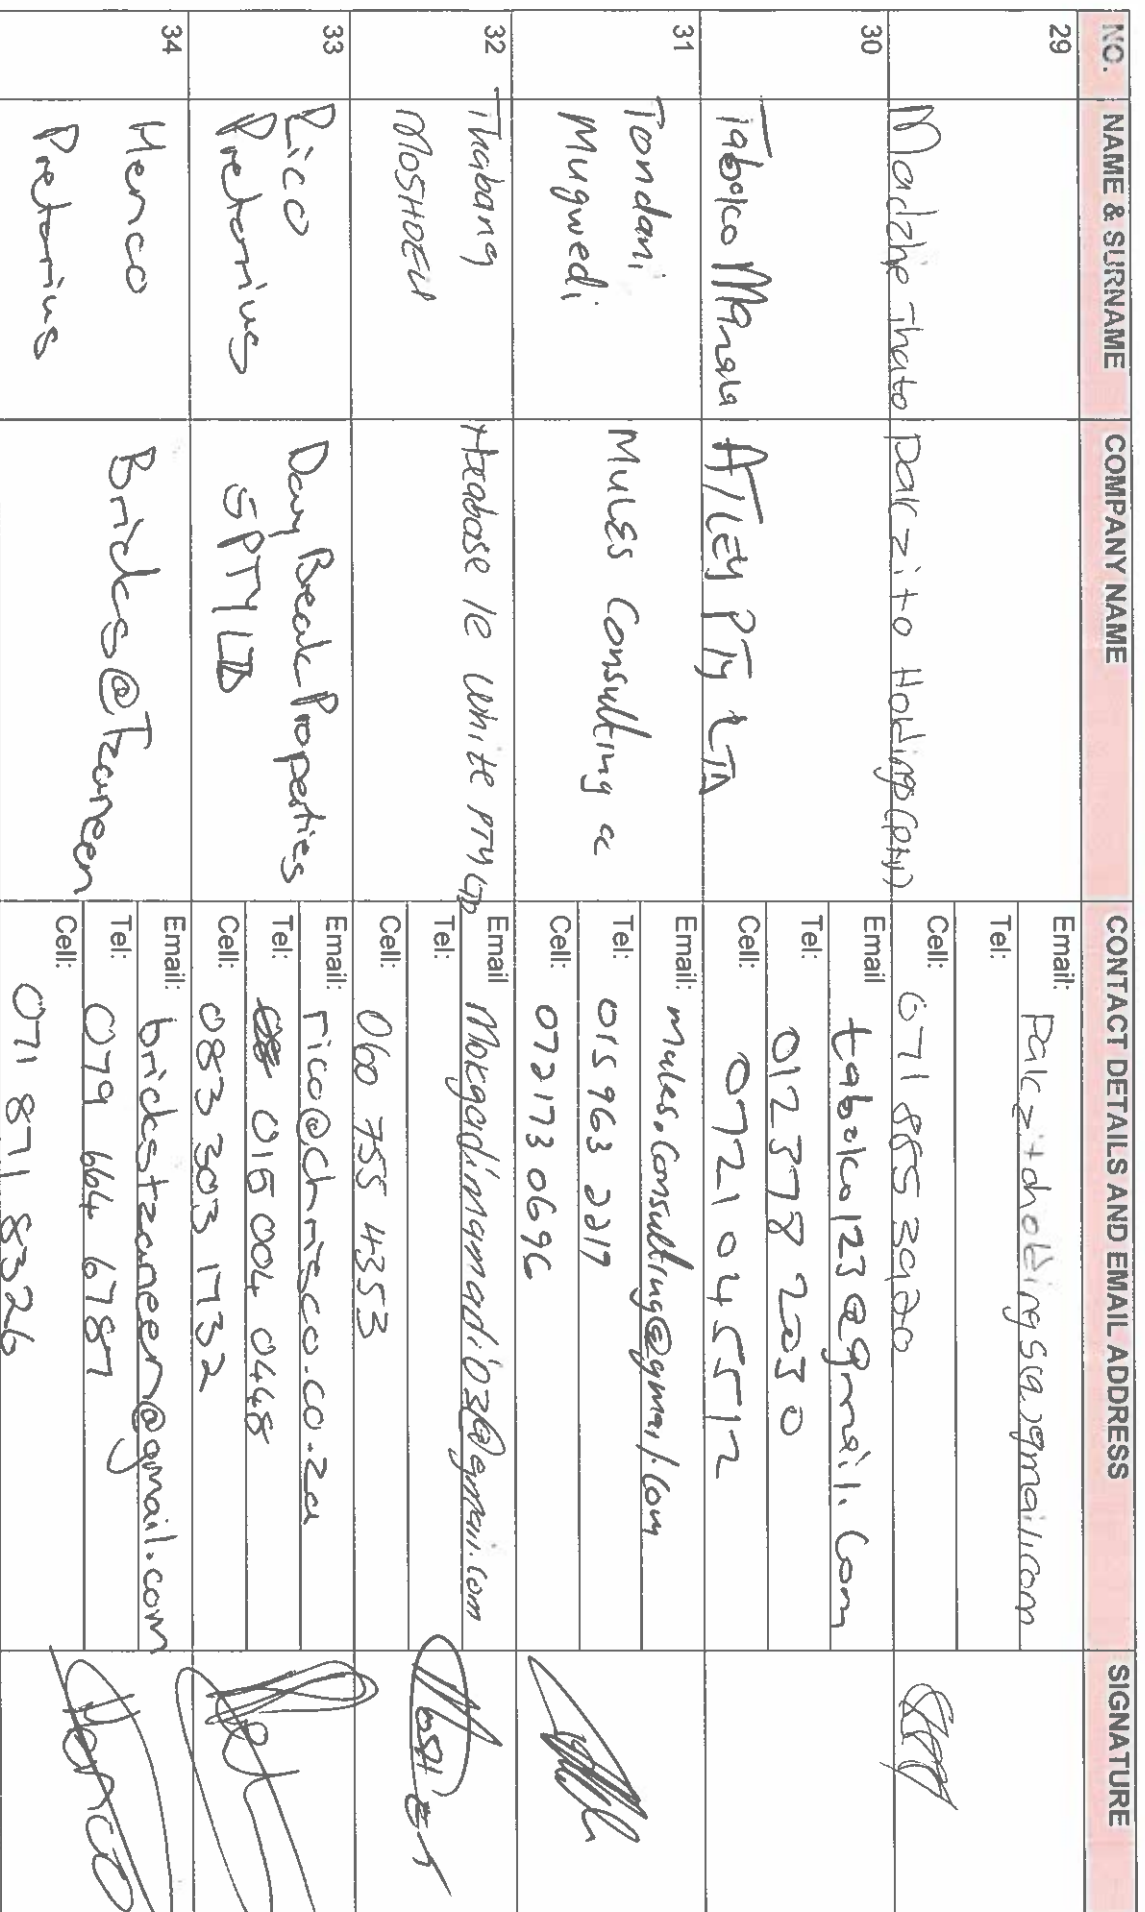 NO. NAME & SURNAME COMPANY NAME CONTACT DETAILS AND EMAIL ADDRESS SIGNATURE
29
Madzhie Thato
Palczito Holdings (Pty)
Email:
Tel:
Cell: 071 885 3920
30
Taboko
ATLEY PTY LTD
Email taboko123@gmail.com
Tel: 012 378 2050
Cell: 0721045512
31
Tondani
Mugwedi
MULES Consulting
Email: mules.consulting@gmail.com
Tel: 015 963 2217
Cell: 072 173 0696
32
Thabang
MOSHOEU
le white PTY LTD
Email
Tel:
Cell: 060 755 4353
33
Rico
Pretorius
Day Break Properties
5 PTY LTD
Email: rico@chrisco.co.za
Tel: 015 004 0448
Cell: 083 303 1732
34
Henco
Pretorius
Bricks@Tzaneen
Email: brickstzaneen@gmail.com
Tel: 079 664 6787
Cell: 071 871 8326
Henco